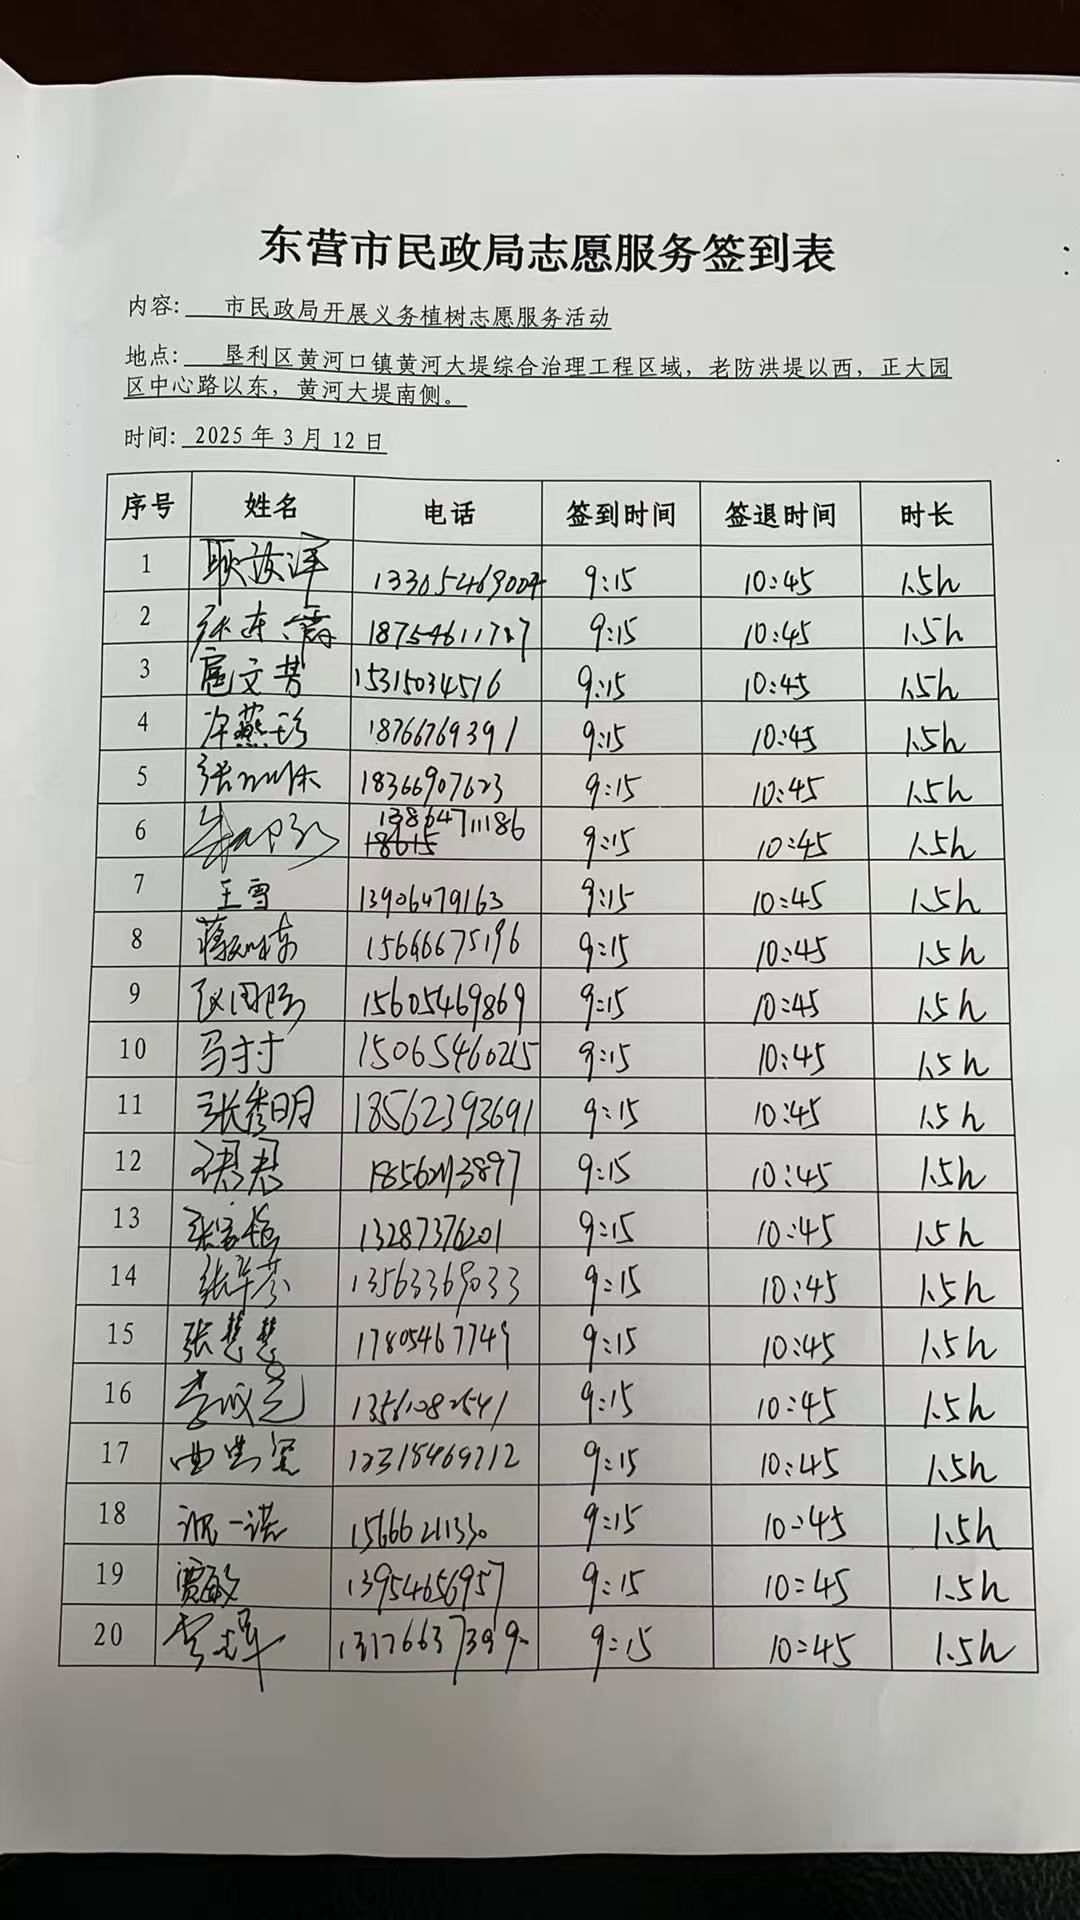 东营市民政局志愿服务签到表
内容: 市民政局开展义务植树志愿服务活动
地点: 垦利区黄河口镇黄河大堤综合治理工程区域，老防洪堤以西，正大园
区中心路以东，黄河大堤南侧。
时间: 2025年3月12日
序号 姓名 电话 签到时间 签退时间 时长
1 9:15 10:45 1.5h
2 9:15 10:45 1.5h
3 扈文芳 15315034516 9:15 10:45 1.5h
4 18766769391 9:15 10:45 1.5h
5 18366907623 9:15 10:45 1.5h
6 13864711186 9:15 10:45 1.5h
7 王雪 13906479163 9:15 10:45 1.5h
8 15666675196 9:15 10:45 1.5h
9 15605469869 9:15 10:45 1.5h
10 马村 15065460215 9:15 10:45 1.5h
11 张秀明 18562393691 9:15 10:45 1.5h
12 9:15 10:45 1.5h
13 13287376201 9:15 10:45 1.5h
14 张华芬 13563369033 9:15 10:45 1.5h
15 张慧慧 17805467749 9:15 10:45 1.5h
16 9:15 10:45 1.5h
17 9:15 10:45 1.5h
18 15666211330 9:15 10:45 1.5h
19 贾敏 13954656957 9:15 10:45 1.5h
20 13176637399 9:15 10:45 1.5h